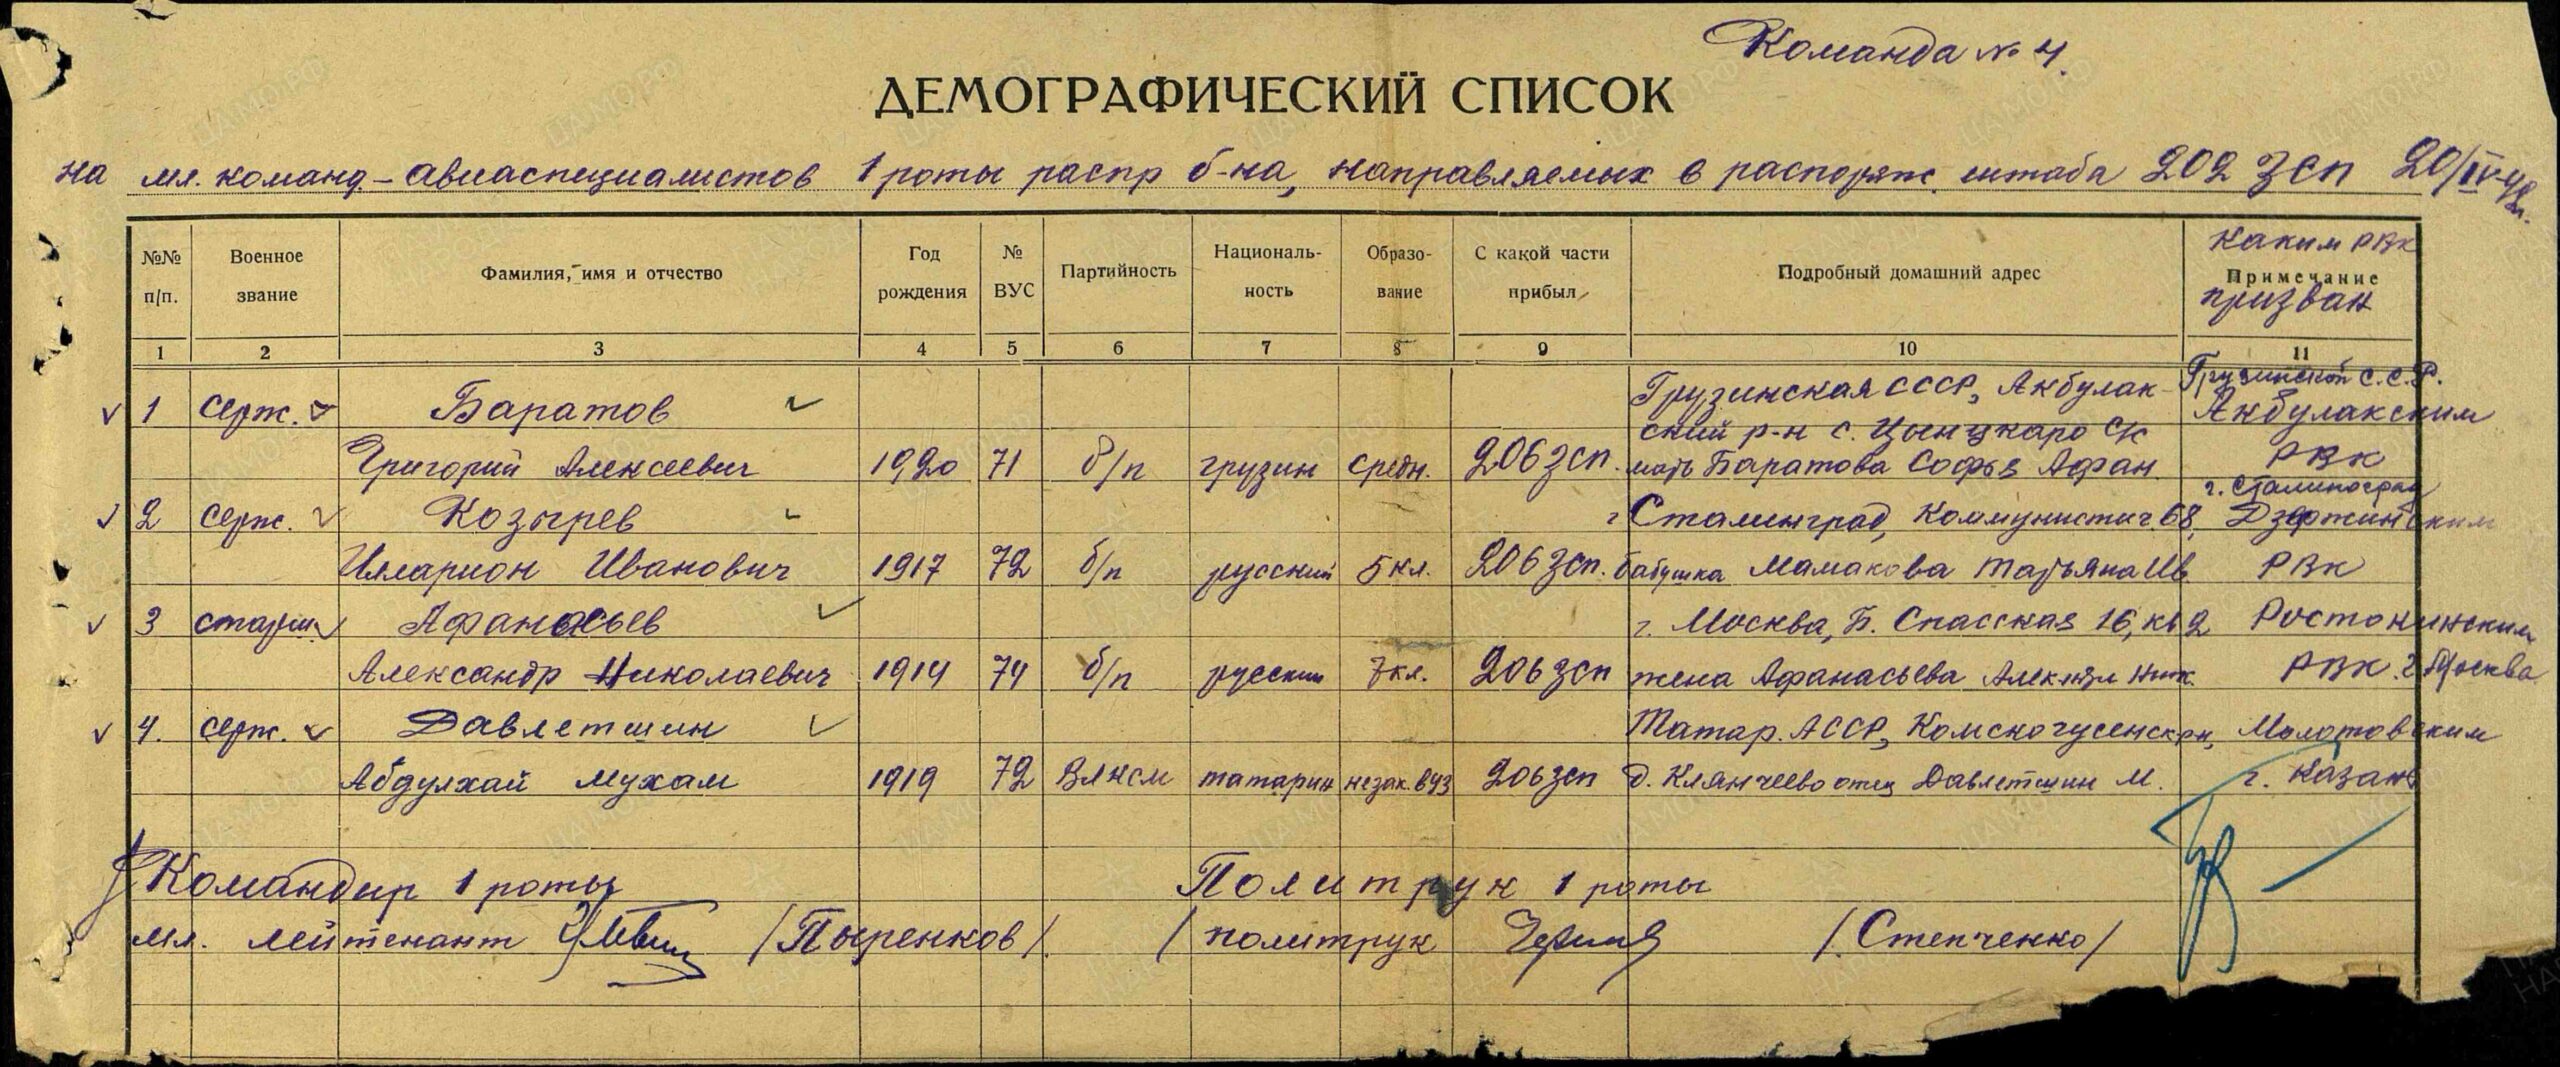 Команда № 4.
ДЕМОГРАФИЧЕСКИЙ СПИСОК
на мл. команд-авиаспециалистов 1 роты распр б-на, направляемых в распоряж. штаба 202 ЗСП 20/IV-42г.
№№ п/п. Военное звание Фамилия, имя и отчество Год рождения № ВУС Партийность Националь-ность Образо-вание С какой части прибыл Подробный домашний адрес Каким РВК Примечание призван
1 2 3 4 5 6 7 8 9 10 11
1 серж. Баратов Грузинская СССР, Акбулак- Грузинской С.С.Р. Акбулакским
ский р-н с. Цынцкаро СК
Григорий Алексеевич 1920 71 б/п грузин средн. 206 зсп. мать Баратова Софья Афан. РВК
2 серж. Козырев г Сталинград, Коммунистич. 68, г. Сталиноград Дзержинским
Илларион Иванович 1917 72 б/п русский 5 кл. 206 зсп. бабушка Мамакова Татьяна Ив. РВК
3 старш. Афанасьев г. Москва, Б. Спасская 16, кв 2 Ростокинским
Александр Николаевич 1914 74 б/п русский 7 кл. 206 зсп жена Афанасьева Ник. РВК г. Москва
4. серж. Давлетшин Татар. АССР, Молотовским
Абдулхай Мухам 1919 72 ВЛКСМ татарин незак. ВУЗ 206 зсп д. Клянчеево отец Давлетшин М. г. Казань
Командир 1 роты Политрук 1 роты
мл. лейтенант /Пыренков/. /политрук /Степченко/